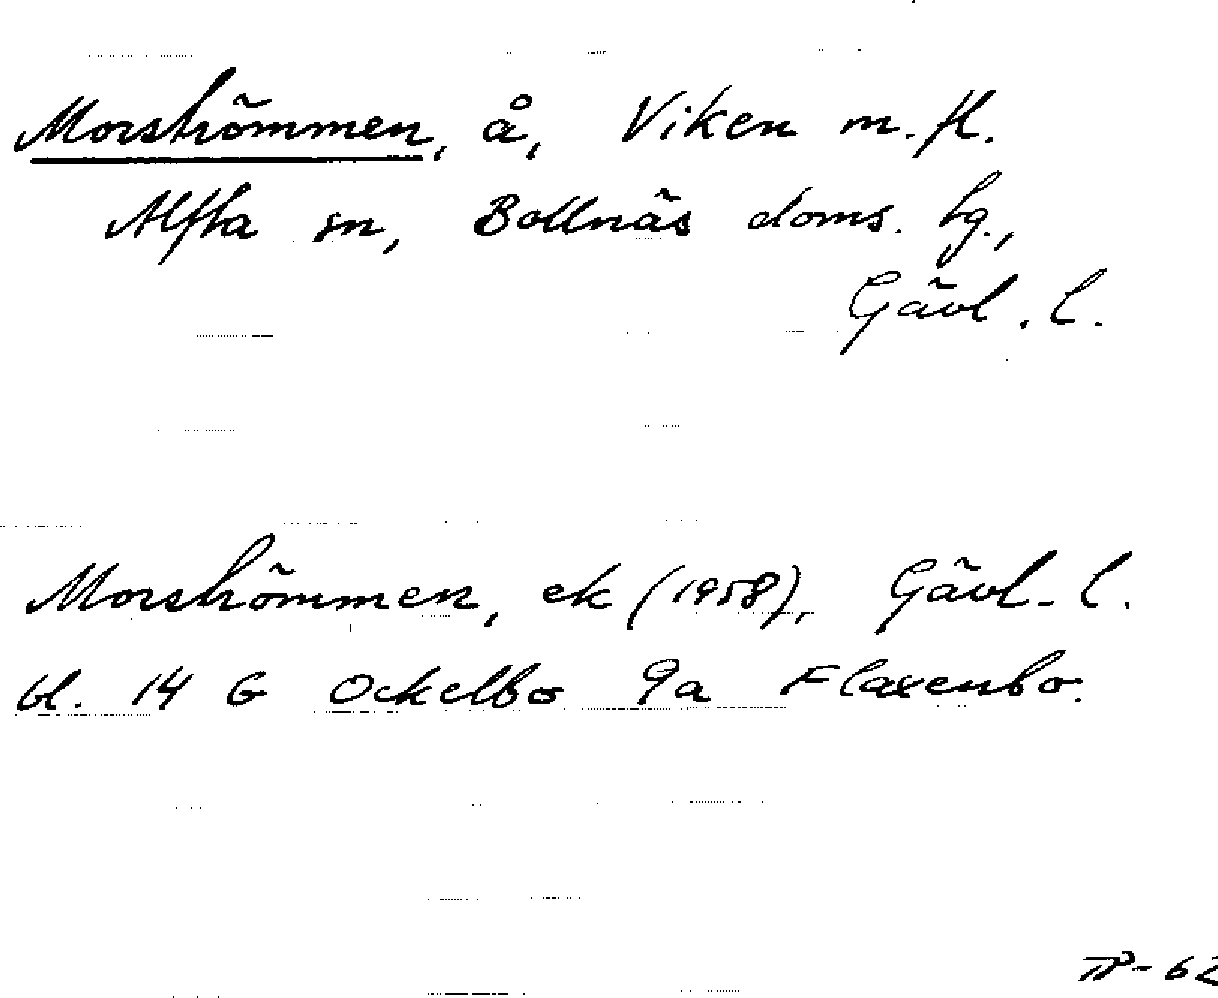 Morströmmen, å, Viken m.fl.
Alfta sn, Bollnäs doms. hg.,
Gävl. l.
Morströmmen, ek (1958), Gävl. l.
bl. 14 G Ockelbo 9a Flaxenbo.
-62